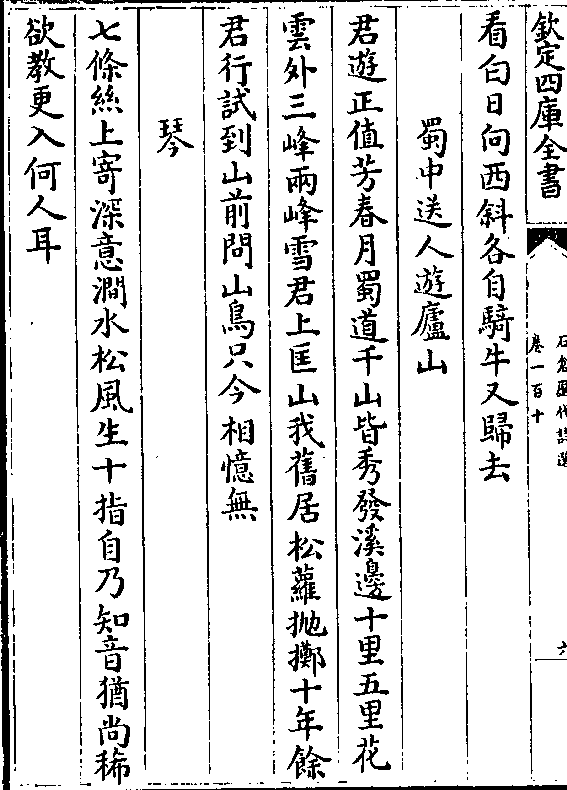 欽定四庫全書
石倉歷代詩選
卷一百十
六
看白日向西斜各自騎牛又歸去
蜀中送人遊廬山
君遊正值芳春月蜀道千山皆秀發溪邊十里五里花
雲外三峰兩峰雪君上匡山我舊居松蘿抛擲十年餘
君行試到山前問山鳥只今相憶無
琴
七條絲上寄深意澗水松風生十指自乃知音猶尚稀
欲教更入何人耳